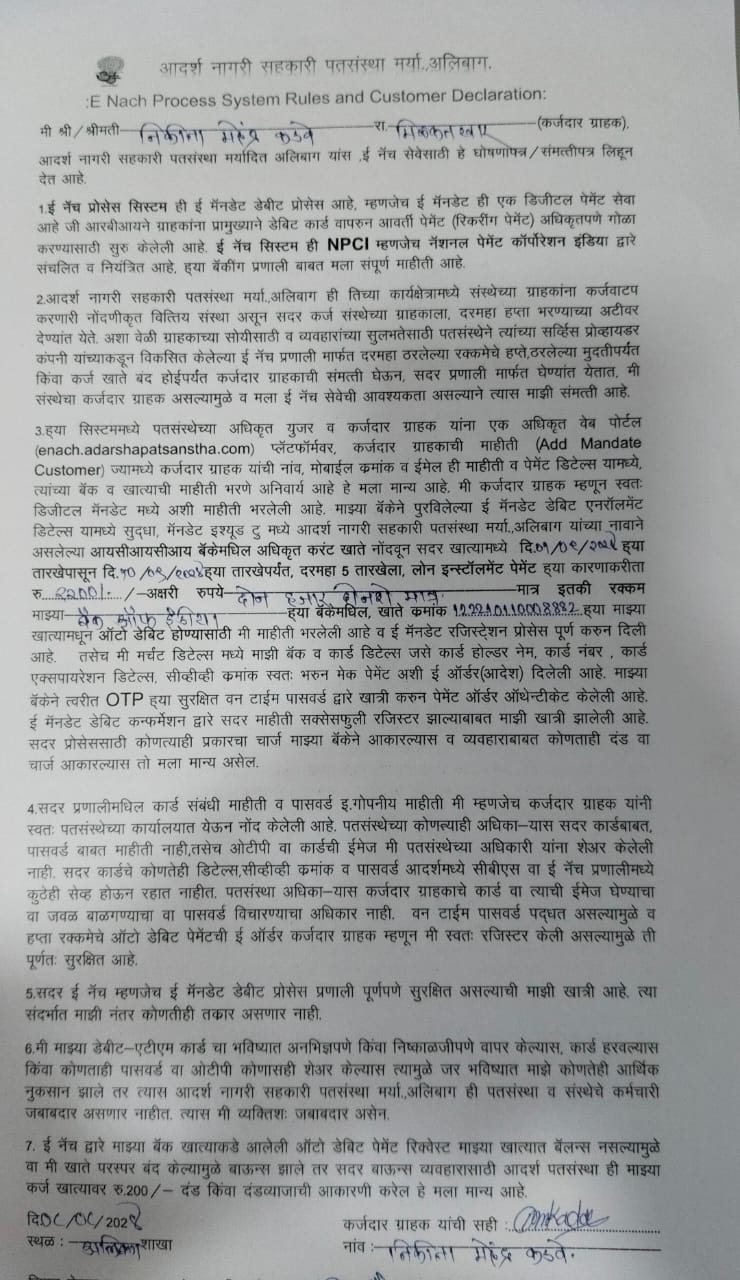 आदर्श नागरी सहकारी पतसंस्था मर्या.,अलिबाग.
:E Nach Process System Rules and Customer Declaration:
मी श्री/श्रीमती निकीता महेंद्र कडवे रा. मिळकतखार (कर्जदार ग्राहक),
आदर्श नागरी सहकारी पतसंस्था मर्यादित अलिबाग यांस ,ई नॅच सेवेसाठी हे घोषणापत्र/संमत्तीपत्र लिहून
देत आहे.
1.ई नॅच प्रोसेस सिस्टिम ही ई मॅनडेट डेबीट प्रोसेस आहे, म्हणजेच ई मॅनडेट ही एक डिजीटल पेमेंट सेवा
आहे जी आरबीआयने ग्राहकांना प्रामुख्याने डेबिट कार्ड वापरुन आवर्ती पेमेंट (रिकरींग पेमेंट) अधिकृतपणे गोळा
करण्यासाठी सुरु केलेली आहे. ई नॅच सिस्टिम ही NPCI म्हणजेच नॅशनल पेमेंट कॉर्पोरेशन इंडिया द्वारे
संचलित व नियंत्रित आहे, ह्या बॅकींग प्रणाली बाबत मला संपूर्ण माहीती आहे.
2.आदर्श नागरी सहकारी पतसंस्था मर्या.,अलिबाग ही तिच्या कार्यक्षेत्रामध्ये संस्थेच्या ग्राहकांना कर्जवाटप
करणारी नोंदणीकृत वित्तिय संस्था असून सदर कर्ज संस्थेच्या ग्राहकाला, दरमहा हप्ता भरण्याच्या अटीवर
देण्यांत येते. अशा वेळी ग्राहकाच्या सोयीसाठी व व्यवहारांच्या सुलभतेसाठी पतसंस्थेने त्यांच्या सर्व्हिस प्रोव्हायडर
कंपनी यांच्याकडून विकसित केलेल्या ई नॅच प्रणाली मार्फत दरमहा ठरलेल्या रक्कमेचे हप्ते,ठरलेल्या मुदतीपर्यंत
किंवा कर्ज खाते बंद होईपर्यंत कर्जदार ग्राहकाची संमत्ती घेऊन, सदर प्रणाली मार्फत घेण्यांत येतात, मी
संस्थेचा कर्जदार ग्राहक असल्यामुळे व मला ई नॅच सेवेची आवश्यकता असल्याने त्यास माझी संमत्ती आहे.
3.ह्या सिस्टिममध्ये पतसंस्थेच्या अधिकृत युजर व कर्जदार ग्राहक यांना एक अधिकृत वेब पोर्टल
(enach.adarshapatsanstha.com) प्लॅटफॉर्मवर, कर्जदार ग्राहकाची माहीती (Add Mandate
Customer) ज्यामध्ये कर्जदार ग्राहक यांची नांव, मोबाईल क्रमांक व ईमेल ही माहीती व पेमेंट डिटेल्स यामध्ये,
त्यांच्या बँक व खात्याची माहीती भरणे अनिवार्य आहे हे मला मान्य आहे. मी कर्जदार ग्राहक म्हणून स्वतः
डिजीटल मॅनडेट मध्ये अशी माहीती भरलेली आहे. माझ्या बॅकेने पुरविलेल्या ई मॅनडेट डेबिट एनरॉलमेंट
डिटेल्स यामध्ये सुद्धा, मॅनडेट इश्यूड टु मध्ये आदर्श नागरी सहकारी पतसंस्था मर्या.,अलिबाग यांच्या नावाने
असलेल्या आयसीआयसीआय बॅकेमधिल अधिकृत करंट खाते नोंदवून सदर खात्यामध्ये दि. ह्या
तारखेपासून दि. ह्या तारखेपर्यंत, दरमहा 5 तारखेला, लोन इन्स्टॉलमेंट पेमेंट ह्या कारणाकरीता
रु. 2200/- /-अक्षरी रुपये दोन हजार दोनशे मात्र मात्र इतकी रक्कम
माझ्या बँक ऑफ इंडिया ह्या बॅकेमधिल, खाते क्रमांक ह्या माझ्या
खात्यामधून ऑटो डेबिट होण्यासाठी मी माहीती भरलेली आहे व ई मॅनडेट रजिस्ट्रेशन प्रोसेस पूर्ण करुन दिली
आहे. तसेच मी मर्चंट डिटेल्स मध्ये माझी बॅक व कार्ड डिटेल्स जसे कार्ड होल्डर नेम, कार्ड नंबर , कार्ड
एक्सपायरेशन डिटेल्स, सीव्हीव्ही क्रमांक स्वतः भरुन मेक पेमेंट अशी ई ऑर्डर(आदेश) दिलेली आहे. माझ्या
बॅकेने त्वरीत OTP ह्या सुरक्षित वन टाईम पासवर्ड द्वारे खात्री करुन पेमेंट ऑर्डर ऑथेन्टीकेट केलेली आहे.
ई मॅनडेट डेबिट कन्फर्मेशन द्वारे सदर माहीती सक्सेसफुली रजिस्टर झाल्याबाबत माझी खात्री झालेली आहे.
सदर प्रोसेससाठी कोणत्याही प्रकारचा चार्ज माझ्या बॅकेने आकारल्यास व व्यवहाराबाबत कोणताही दंड वा
चार्ज आकारल्यास तो मला मान्य असेल.
4.सदर प्रणालीमधिल कार्ड संबंधी माहीती व पासवर्ड इ.गोपनीय माहीती मी म्हणजेच कर्जदार ग्राहक यांनी
स्वतः पतसंस्थेच्या कार्यालयात येऊन नोंद केलेली आहे. पतसंस्थेच्या कोणत्याही अधिका-यास सदर कार्डबाबत,
पासवर्ड बाबत माहीती नाही,तसेच ओटीपी वा कार्डची ईमेज मी पतसंस्थेच्या अधिकारी यांना शेअर केलेली
नाही. सदर कार्डचे कोणतेही डिटेल्स,सीव्हीव्ही क्रमांक व पासवर्ड आदर्शमध्ये सीबीएस वा ई नॅच प्रणालीमध्ये
कुठेही सेव्ह होऊन रहात नाहीत. पतसंस्था अधिका-यास कर्जदार ग्राहकाचे कार्ड वा त्याची ईमेज घेण्याचा
वा जवळ बाळगण्याचा वा पासवर्ड विचारण्याचा अधिकार नाही. वन टाईम पासवर्ड पद्धत असल्यामुळे व
हप्ता रक्कमेचे ऑटो डेबिट पेमेंटची ई ऑर्डर कर्जदार ग्राहक म्हणून मी स्वतः रजिस्टर केली असल्यामुळे ती
पूर्णतः सुरक्षित आहे.
5.सदर ई नॅच म्हणजेच ई मॅनडेट डेबीट प्रोसेस प्रणाली पूर्णपणे सुरक्षित असल्याची माझी खात्री आहे. त्या
संदर्भात माझी नंतर कोणतीही तक्रार असणार नाही.
6.मी माझ्या डेबीट-एटीएम कार्ड चा भविष्यात अनभिज्ञपणे किंवा निष्काळजीपणे वापर केल्यास, कार्ड हरवल्यास
किंवा कोणताही पासवर्ड वा ओटीपी कोणासही शेअर केल्यास त्यामुळे जर भविष्यात माझे कोणतेही आर्थिक
नुकसान झाले तर त्यास आदर्श नागरी सहकारी पतसंस्था मर्या.,अलिबाग ही पतसंस्था व संस्थेचे कर्मचारी
जबाबदार असणार नाहीत. त्यास मी व्यक्तिशः जबाबदार असेन.
7. ई नॅच द्वारे माझ्या बॅक खात्याकडे आलेली ऑटो डेबिट पेमेंट रिक्वेस्ट माझ्या खात्यात बॅलन्स नसल्यामुळे
वा मी खाते परस्पर बंद केल्यामुळे बाऊन्स झाले तर सदर बाऊन्स व्यवहारासाठी आदर्श पतसंस्था ही माझ्या
कर्ज खात्यावर रु.200/- दंड किंवा दंडव्याजाची आकारणी करेल हे मला मान्य आहे.
दि०८/०८/202४ कर्जदार ग्राहक यांची सही :
स्थळ : शाखा नांव: निकीता महेंद्र कडवे.